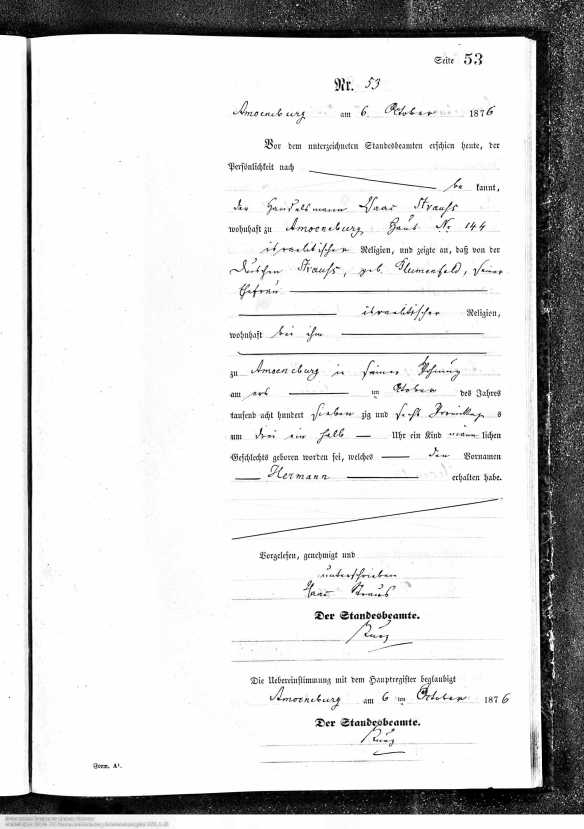 Seite 53
Nr. 53
Amoeneburg am 6. October 1876
Vor dem unterzeichneten Standesbeamten erschien heute, der
Persönlichkeit nach
be kannt,
der Handelsmann Isaac Strauß
wohnhaft zu Amoeneburg Haus Nr. 144
israelitischer Religion, und zeigte an, daß von der
Strauß, geb. Blumenfeld, seiner
Ehefrau
israelitischer Religion,
wohnhaft bei ihm
zu Amoeneburg in seiner Wohnung
am October des Jahres
tausend acht hundert sieben zig und sechs Vormittags
um drei ein halb Uhr ein Kind männ lichen
Geschlechts geboren worden sei, welches den Vornamen
Hermann erhalten habe.
Vorgelesen, genehmigt und
unterschrieben
Isaac Straus
Der Standesbeamte.
Die Uebereinstimmung mit dem Hauptregister beglaubigt
Amoeneburg am 6 ten October 1876
Der Standesbeamte.
Form. A¹.